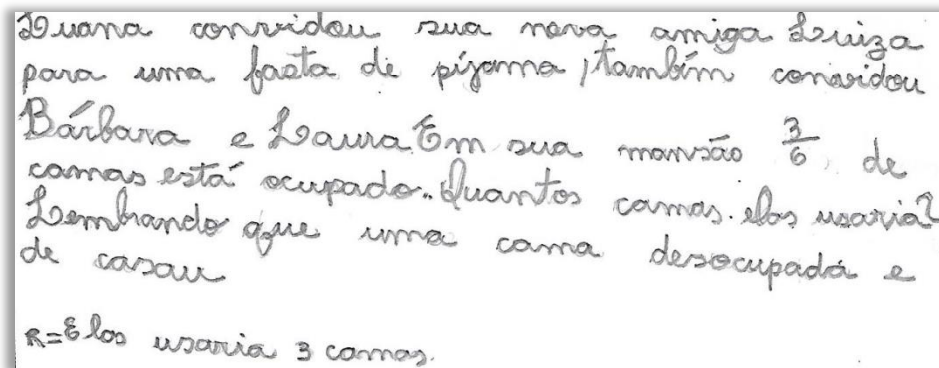 Luana convidou sua nova amiga Luiza
para uma fasta de píjama, também convidou
Bárbara e Laura Em sua mansão 3/6 de
camas está ocupado. Quantos camas. elas usaria?
Lembrando que uma cama desocupada e
de casau
R= Elas usaria 3 camas.